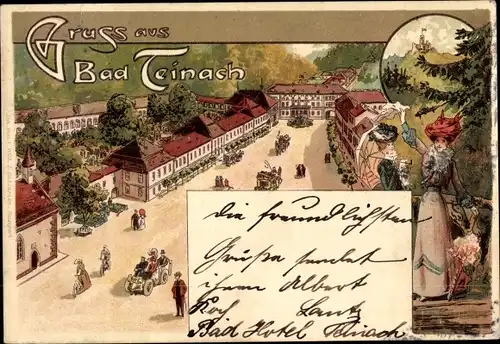 Gruss aus
Bad Teinach
die freundlichsten
Grüße sendet
ihnen Albert
Koch Lantz
Bad Hotel Teinach